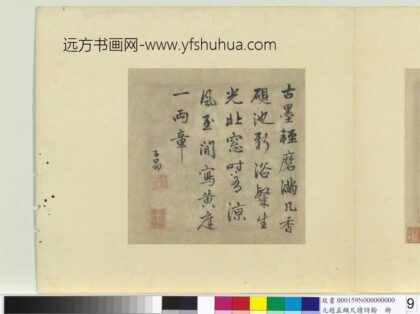 远方书画网-www.yfshuhua.com
古墨輕磨滿几香
硯池新浴粲生
光北窓時有涼
風至閒寫黃庭
一兩章
子昂
故書 000159N000000000
元趙孟頫尺牘詩翰 冊
9